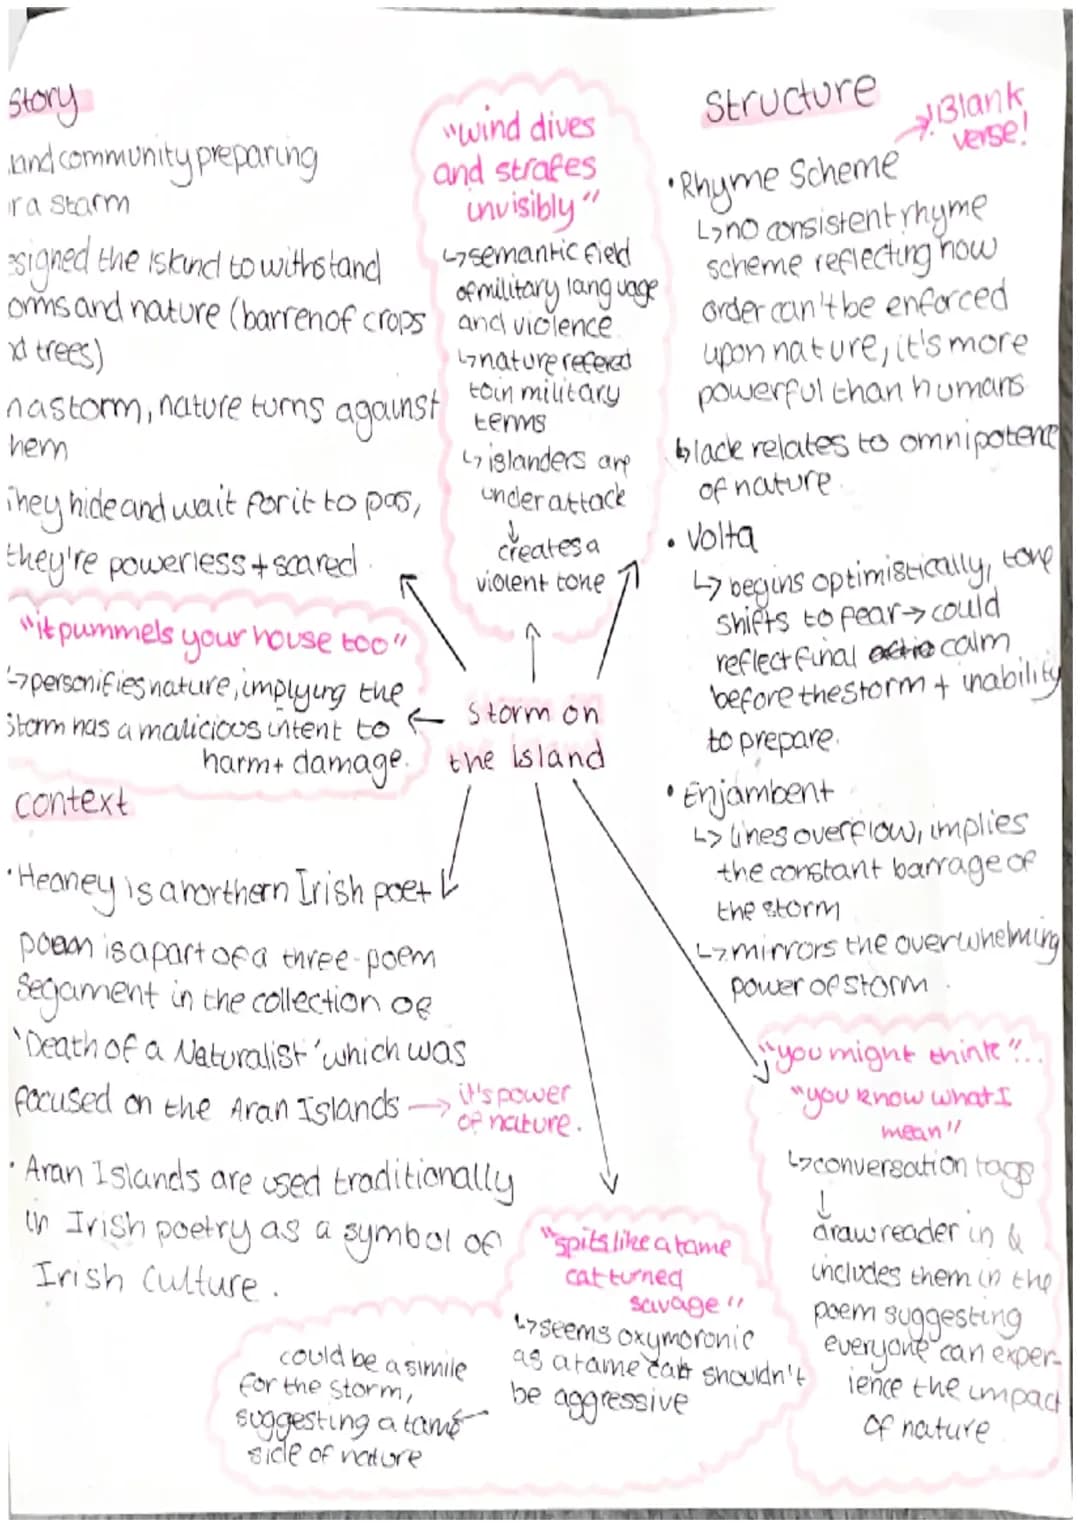 Story
and community preparing
r a storm
esigned the Island to withstand
orms and nature (barren of crops
nd trees)
n a storm, nature turns against
hem
They hide and wait for it to pass,
they're powerless + scared.
"it pummels your house too"
↳ personifies nature, implying the
storm has a malicious intent to
harm + damage.
context
• Heaney is a northern Irish poet
poem is a part of a three-poem
segament in the collection of
'Death of a Naturalist' which was
focused on the Aran Islands → it's power
of nature.
• Aran Islands are used traditionally
in Irish poetry as a symbol of
Irish Culture.
"wind dives
and strafes
invisibly"
↳ semantic field
of military language
and violence
↳ nature refered
to in military
terms
↳ islanders are
under attack
↓
creates a
violent tone
Storm on
the island
Structure
→ !Blank
verse!
• Rhyme Scheme
↳ no consistent rhyme
scheme reflecting how
order can't be enforced
upon nature, it's more
powerful than humans
↳ lack relates to omnipotence
of nature.
• Volta
↳ begins optimistically, tone
shifts to fear → could
reflect final calm
before the storm + inability
to prepare.
• Enjambent
↳ lines overflow, implies
the constant barrage of
the storm
↳ mirrors the overwhelming
power of storm.
"you might think"...
"you know what I
mean"
↳ conversation tags
↓
draw reader in &
includes them in the
poem suggesting
everyone can exper-
ience the impact
of nature
"spits like a tame
cat turned
savage"
↳ seems oxymoronic
as a tame cat shouldn't
be aggressive
could be a simile
for the storm,
suggesting a tame
side of nature